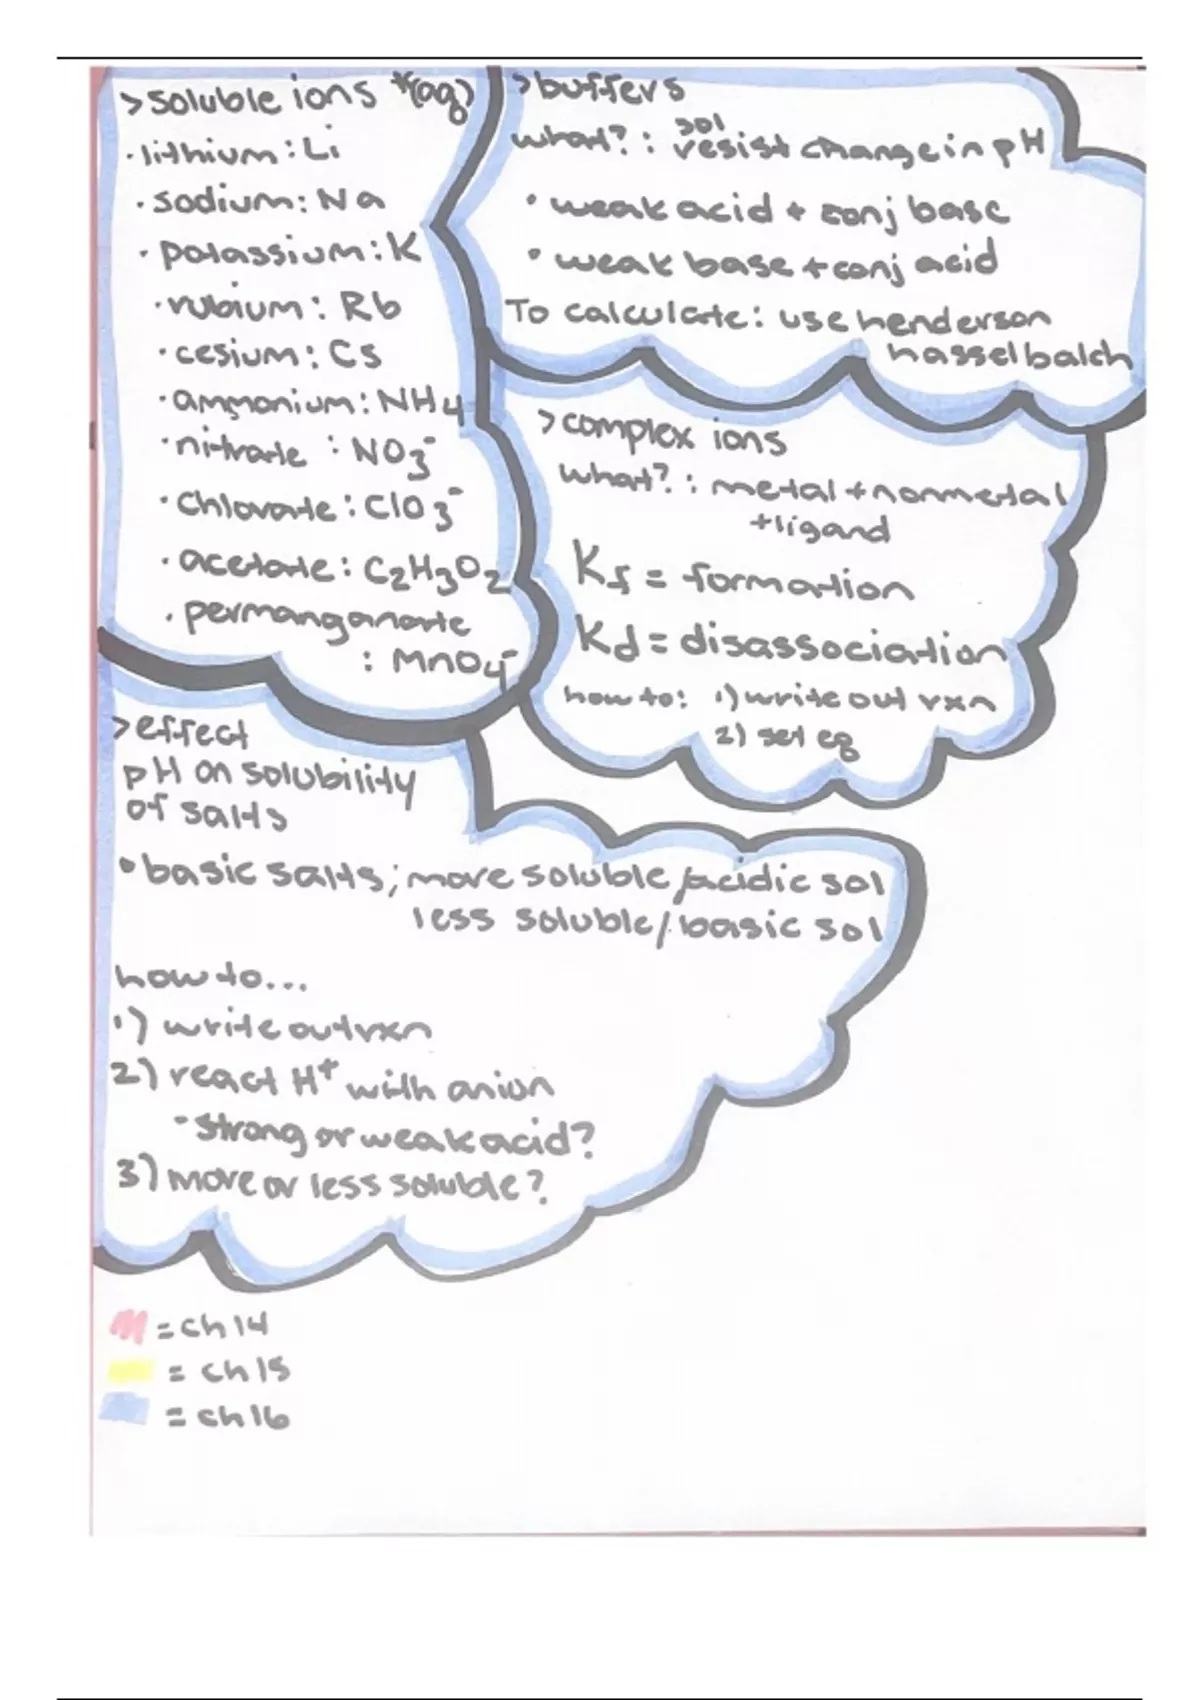 >soluble ions *(aq)
·lithium: Li
·sodium: Na
·potassium: K
·rubium: Rb
·cesium: Cs
·ammonium: NH4
·nitrate : NO3⁻
·chlorate: ClO3⁻
·acetate: C2H3O2
·permanganate
: MnO4⁻
>buffers
what?: sol resist change in pH
·weak acid + conj base
·weak base + conj acid
To calculate: use henderson
hasselbalch
>complex ions
what?: metal + nonmetal
+ligand
Kf = formation
Kd = disassociation
how to: 1) write out rxn
2) set eq
>effect
pH on solubility
of salts
·basic salts; more soluble/acidic sol
less soluble/basic sol
how to...
1) write out rxn
2) react H⁺ with anion
-strong or weak acid?
3) more or less soluble?
= ch 14
= ch 15
= ch 16